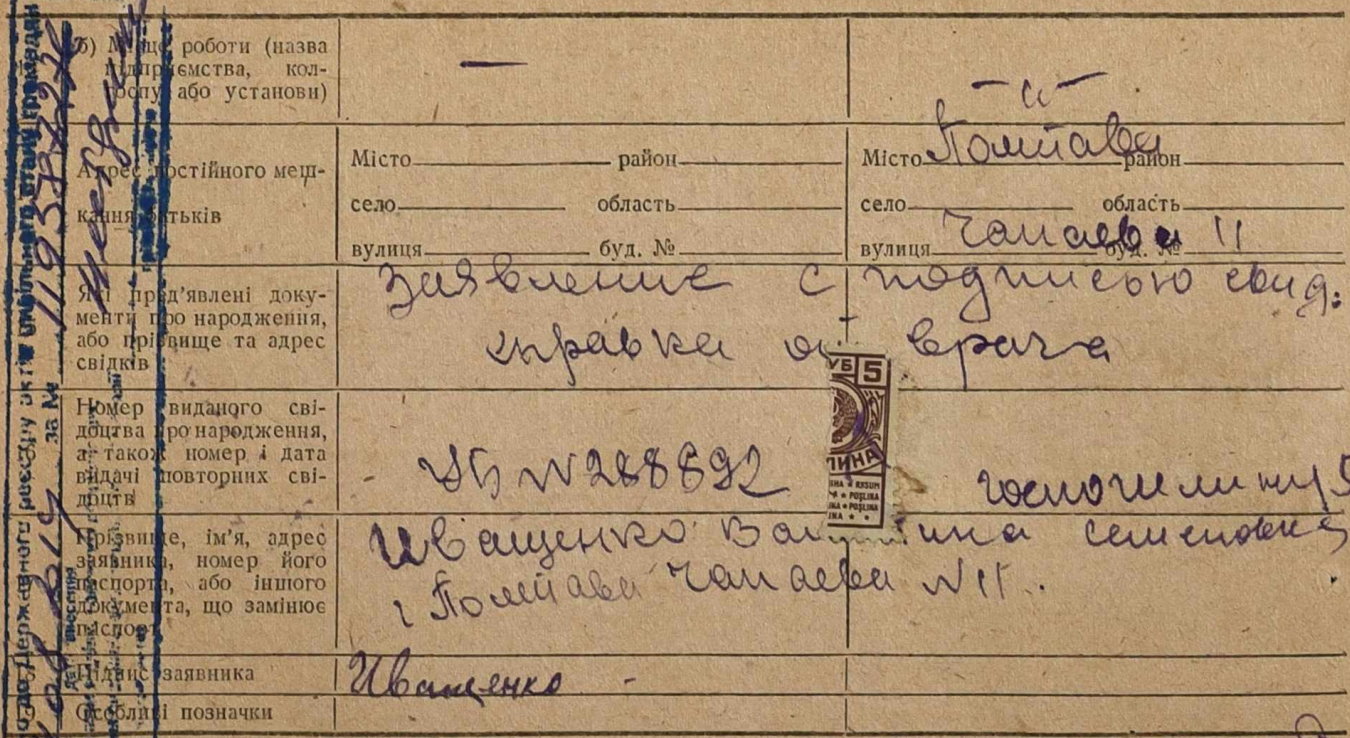 б) Місце роботи (назва
підприємства, кол-
госпу або установи)
—
— " —
Адрес постійного меш-
кання батьків
Місто район
село область
вулиця буд. №
Місто Полтава район
село область
вулиця Чапаева 11 буд. №
Які пред'явлені доку-
менти про народження,
або прізвище та адрес
свідків
Заявление с подписью свид.
справка от врача
Номер виданого сві-
доцтва про народження,
а також номер і дата
видачі повторних сві-
доцтв
УБ N 288692
УБ 5
ЛИНА
RYSUM
POŞLINA
POŞLINA
госпошлину 5
Прізвище, ім'я, адрес
заявника, номер його
паспорта, або іншого
документа, що замінює
паспорт
Иващенко Валентина Семеновна
г Полтава Чапаева N 11.
Підпис заявника
Иващенко -
Особливі позначки
до Державного реєстру актів цивільного стану громадян
за №
внесення